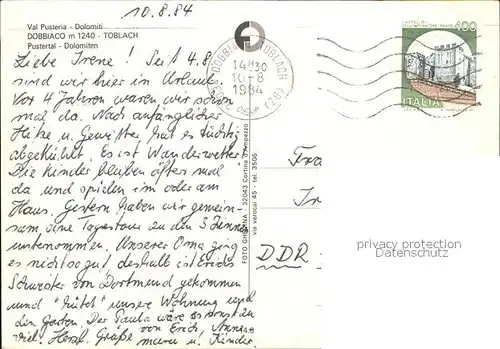 10.8.84
Val Pusteria - Dolomiti
DOBBIACO m 1240 - TOBLACH
Pustertal - Dolomiten
Liebe Irene! Seit 4.8.
sind wir hier im Urlaub.
Vor 4 Jahren waren wir schon
mal da. Nach anfänglicher
Hitze u. Gewitter hat es tüchtig
abgekühlt. Es ist Wanderwetter.
Die Kinder bleiben öfters mal
da und spielen im oder am
Haus. Gestern haben wir gemein-
sam eine Tagestour zu den 3 Zinnen
unternommen. Unserer Oma ging
es nicht so gut, deshalb ist Erichs
Schwester von Dortmund gekommen
und "hütet" unsere Wohnung und
den Garten. Der Paula wäre es sonst
viel. Herzl. Grüße von Erich,
u. Kinder.
FOTO GHEDINA - 32043 Cortina d'Ampezzo
via verocai 45 - tel. 3506
DOBBIACO TOBLACH
1430
10-8
1984
400
ITALIA
Fra
Ir
DDR
privacy protection
Datenschutz